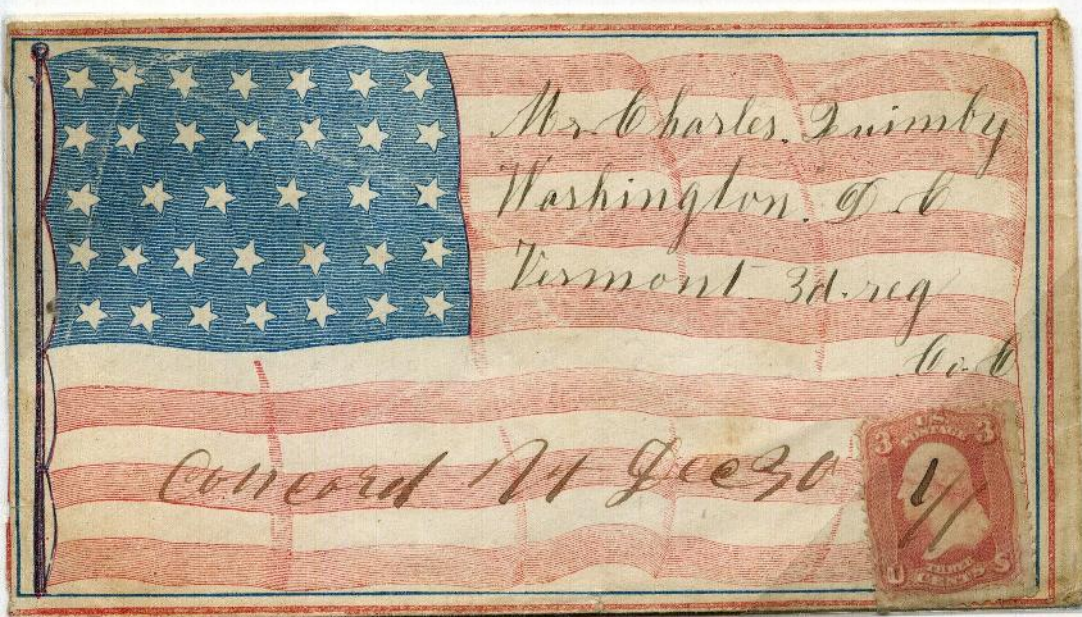 Mr. Charles. Quimby
Washington. D. C
Vermont 3d. reg
Co. C
Concord Vt Dec 30
3 3
U.S.
POSTAGE
1//
THREE
CENTS
U S